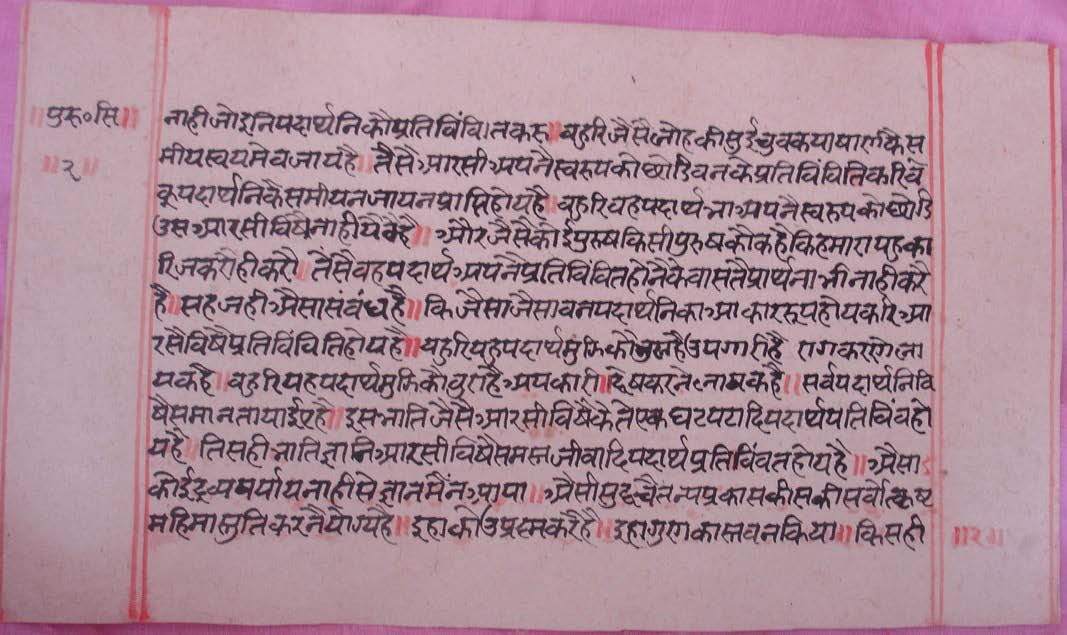 ॥पुरु०सि॥
॥२॥
नाही जो इनि पदार्थनिकौ प्रतिविंवित करू॥ वहुरि जैसै लोह की सुई चुवक पाषाण कै स
मीप स्वयमेव जाय है॥ तैसै आरसी अपनै स्वरूप को छोडि वन के प्रतिविंविति करिवे
कू पदार्थनि कै समीप न जाय न प्राप्ति होय है॥ वहुरि वह पदार्थ भी अपनै स्वरूप को छोडि
उस आरसी विषै नाही पैठे है॥ और जैसै कोई पुरुष किसी पुरुष कौ कहै कि हमारा यहु का
रिज करौ ही करौ॥ तैसै वह पदार्थ अपनै प्रतिविंवित होनै के वासतै प्रार्थना भी नाही करै
है॥ सहज ही अैसा संवंध है॥ कि जैसा जैसा वन पदार्थनि का आकार रूप होय करि आ
रसै विषै प्रतिविंविति होय है॥ वहुरि यहु पदार्थ मुझि कौ भला है उपगारी है राग करणे ला
यक है॥ वहुरि यह पदार्थ मुझि कौ वुरा है अपकारी॥ द्वेष करने लायक है॥ सर्व पदार्थनि वि
षै समानता पाईए है॥ इस भाति जैसै आरसी विषै केतेएक घटपटादि पदार्थ प्रतिविंव हो
य है॥ तिस ही भाति ज्ञानि आरसी विषै समस्त जीवादि पदार्थ प्रतिविंवत होय है॥ अैसा
कोई द्रव्य पर्याय नाही से ज्ञान मैं न आया॥ अैसी सुद्ध चैतन्य प्रकास की सकी सर्वोत्कृष्ट
महिमा स्तुति करनै योग्य है॥ इहा कोउ प्रस्न करै है॥ इहा गुण का स्तवन किया॥ किस ही
॥२॥